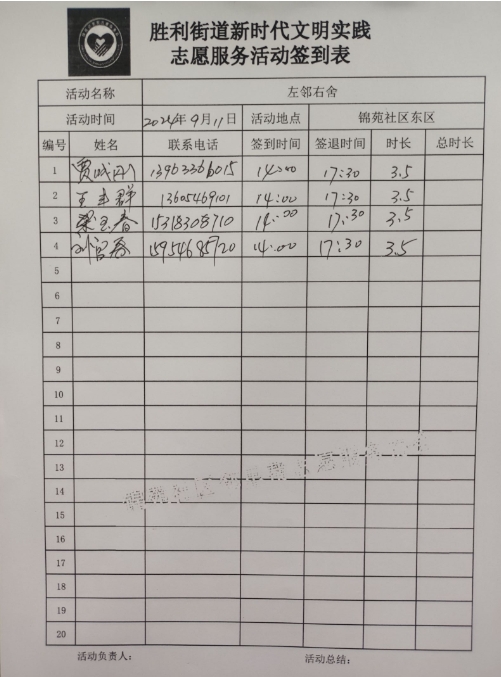 胜利街道新时代文明实践
志愿服务活动签到表
活动名称 左邻右舍
活动时间 2024年9月11日 活动地点 锦苑社区东区
编号 姓名 联系电话 签到时间 签退时间 时长 总时长
1 13963366015 14:00 17:30 3.5
2 王丰群 13605469101 14:00 17:30 3.5
3 梁玉春 15318308710 14:00 17:30 3.5
4 15954685720 14:00 17:30 3.5
5
6
7
8
9
10
11
12
13
14
15
16
17
18
19
20
活动负责人: 活动总结: